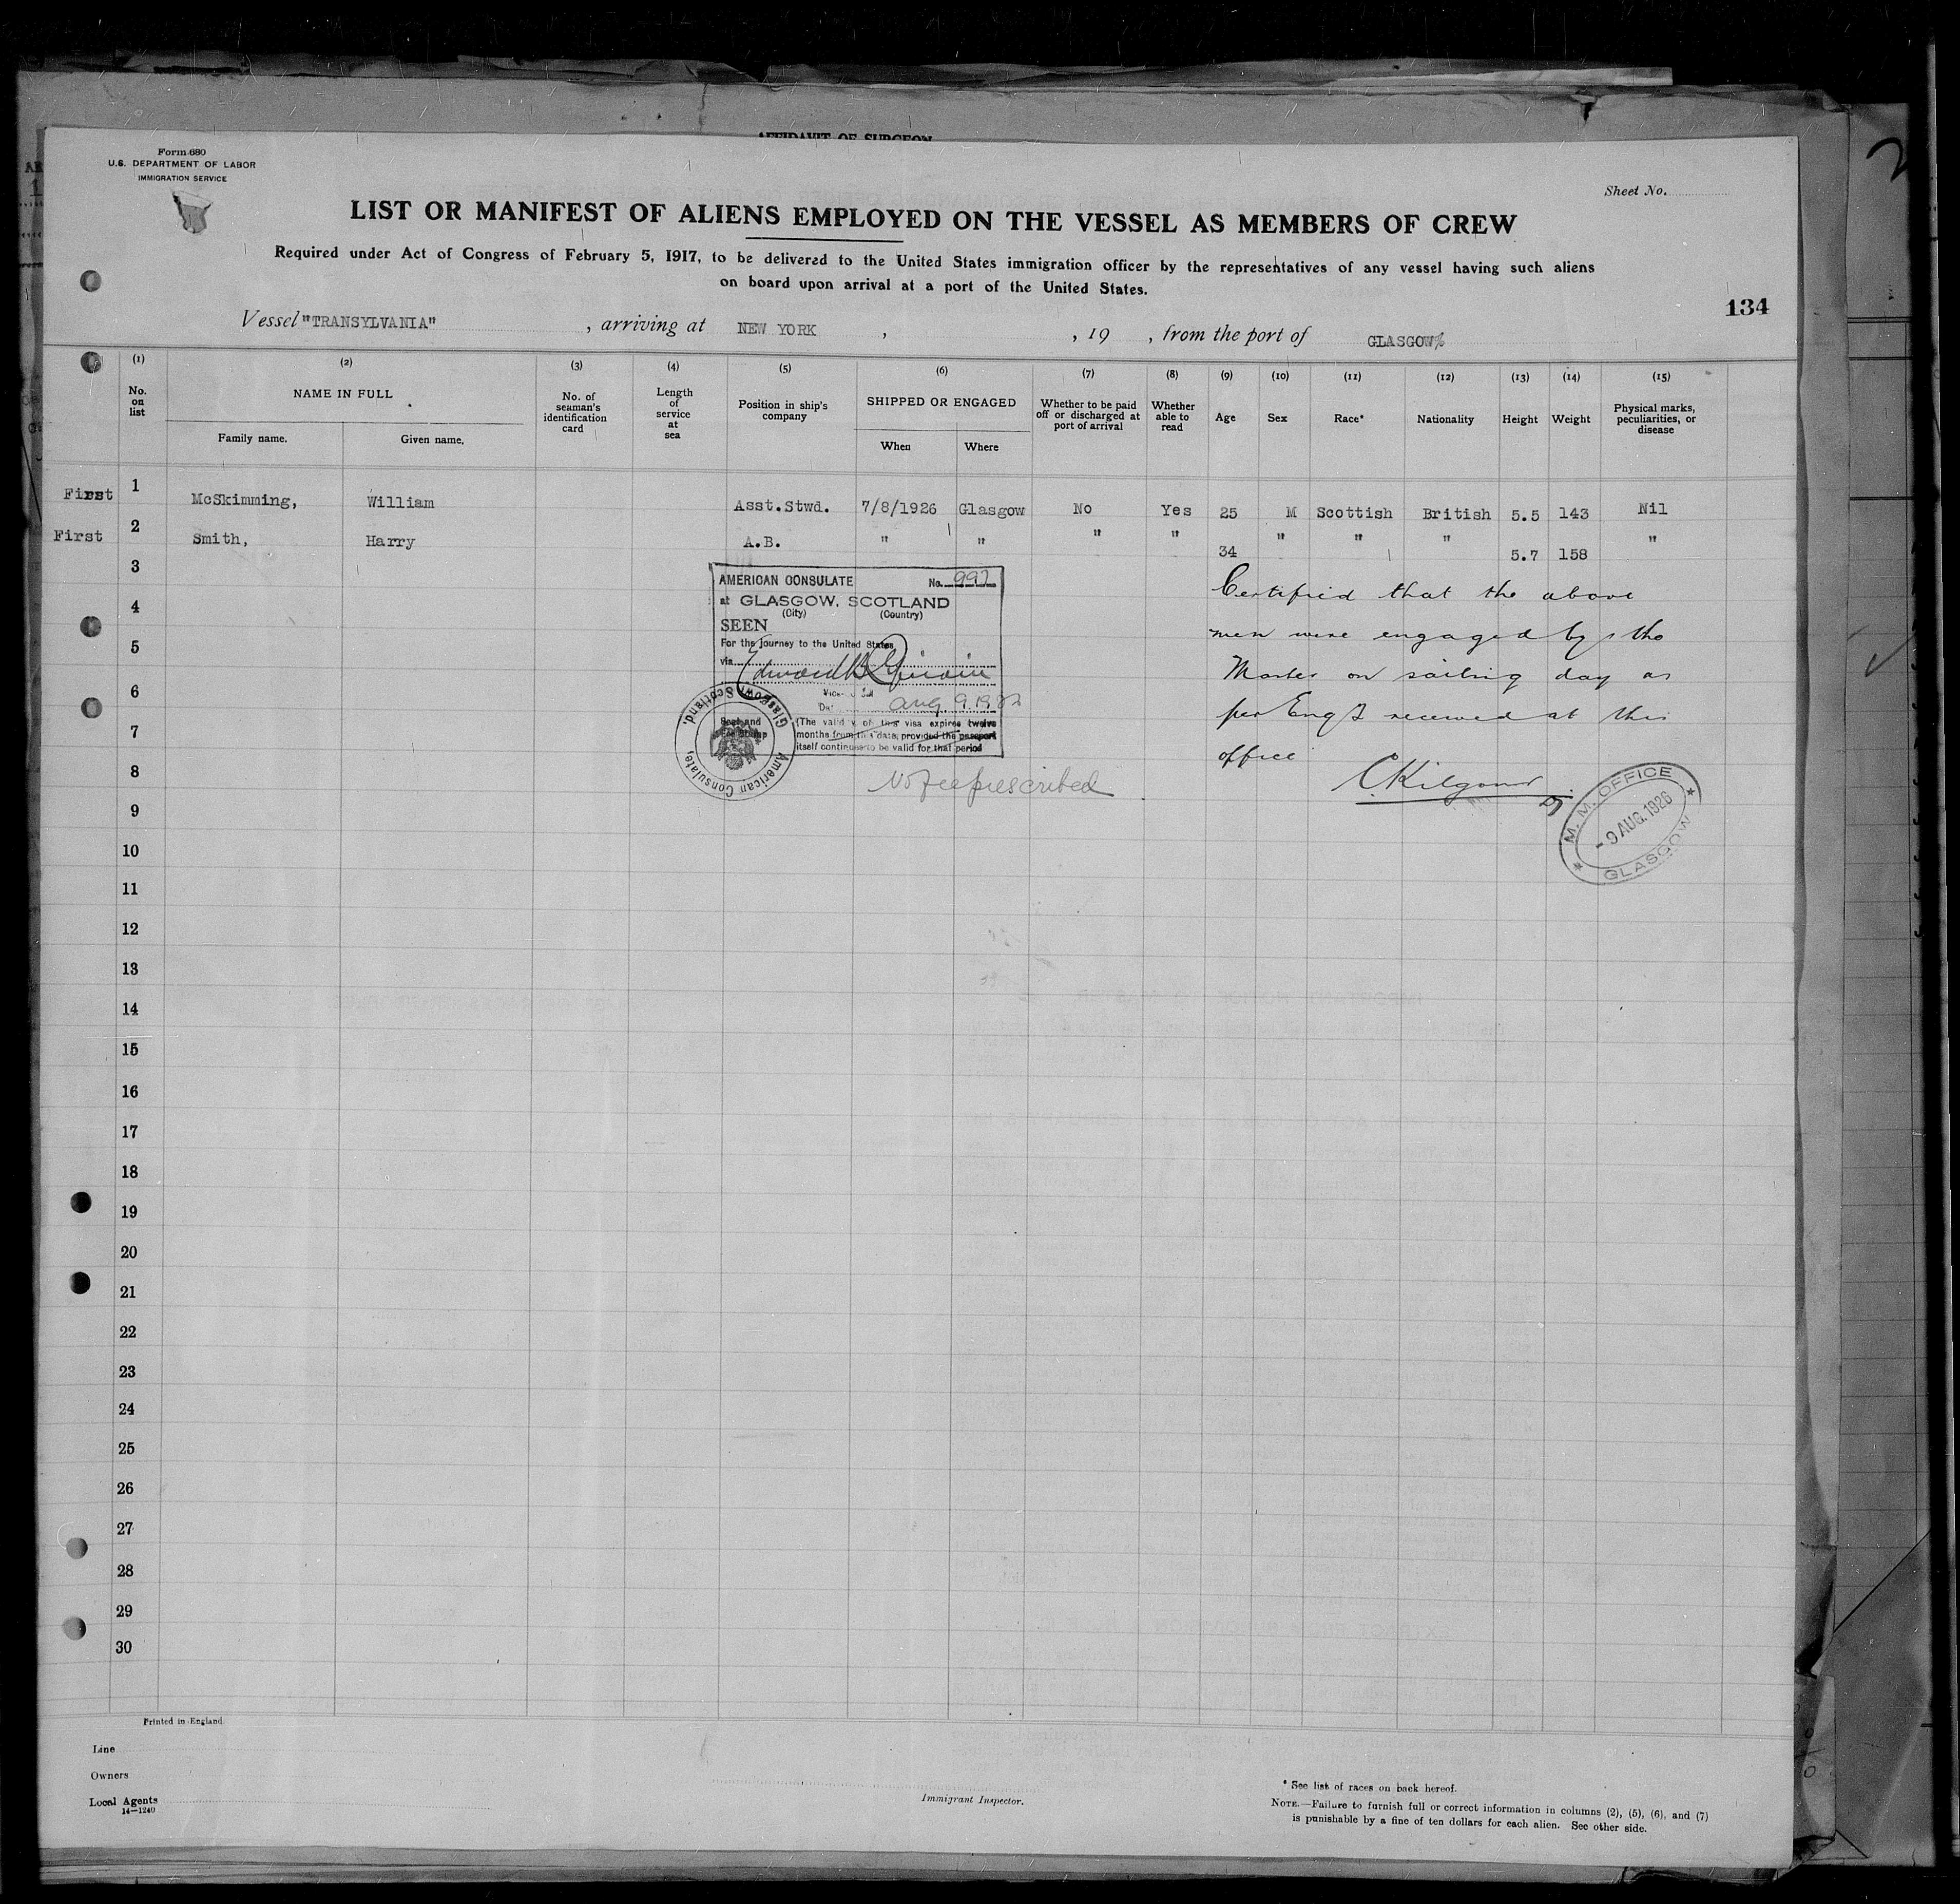 AFFIDAVIT OF SURGEON
Form 680
U.S. DEPARTMENT OF LABOR
IMMIGRATION SERVICE
Sheet No.
LIST OR MANIFEST OF ALIENS EMPLOYED ON THE VESSEL AS MEMBERS OF CREW
Required under Act of Congress of February 5, 1917, to be delivered to the United States immigration officer by the representatives of any vessel having such aliens
on board upon arrival at a port of the United States.
134
Vessel "TRANSYLVANIA" , arriving at NEW YORK , , 19 , from the port of GLASGOW
(1) (2) (3) (4) (5) (6) (7) (8) (9) (10) (11) (12) (13) (14) (15)
No. on list
NAME IN FULL
Family name. Given name.
No. of seaman's identification card
Length of service at sea
Position in ship's company
SHIPPED OR ENGAGED
When Where
Whether to be paid off or discharged at port of arrival
Whether able to read
Age
Sex
Race*
Nationality
Height
Weight
Physical marks, peculiarities, or disease
First 1 McSkimming, William Asst.Stwd. 7/8/1926 Glasgow No Yes 25 M Scottish British 5.5 143 Nil
First 2 Smith, Harry A.B. " " " " 34 " " " 5.7 158 "
3
4
5
6
7
8
9
10
11
12
13
14
15
16
17
18
19
20
21
22
23
24
25
26
27
28
29
30
AMERICAN CONSULATE No. 992
at GLASGOW, SCOTLAND
(City) (Country)
SEEN
For the journey to the United States
via
Aug 9.19
(The validity of this visa expires twelve
months from this date, provided the passport
itself continues to be valid for that period
Seal and
Fee Stamp
American Consulate, Glasgow, Scotland.
No fee prescribed
Certified that the above
men were engaged by the
Master on sailing day as
per Eng 2 received at this
office
C Kilgour
M. M. OFFICE
- 9 AUG. 1926
GLASGOW
Printed in England.
Line
Owners
Local Agents
14—1240
Immigrant Inspector.
* See list of races on back hereof.
NOTE.—Failure to furnish full or correct information in columns (2), (5), (6), and (7)
is punishable by a fine of ten dollars for each alien. See other side.